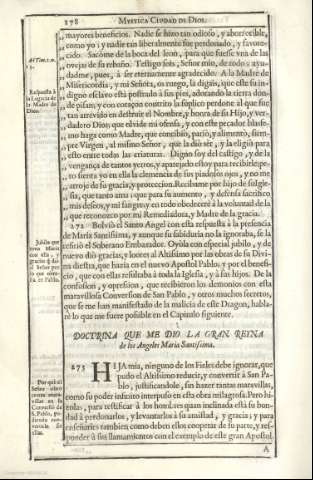 178
MYSTICA CIUDAD DE DIOS.
mayores beneficios. Nadie se hizo tan odioso, y aborrecible,
como yo; y nadie tan liberalmente fue perdonado, y favore-
cido. Sacòme de la boca del leon, para que fuesse vna de las
ovejas de su rebaño. Testigo sois, Señor mio, de todo; ayu-
dadme, pues, à ser eternamente agradecido. A la Madre de
Misericordia, y mi Señora, os ruego, la digais, que este su in-
digno esclavo està postrado à sus pies, adorando la tierra don-
de pisan; y con coraçon contrito la suplico perdone al que fue
tan atrevido en destruir el Nombre, y honra de su Hijo, y ver-
dadero Dios; que olvide mi ofensa, y con este pecador blasfe-
mo haga como Madre, que concibiò, pariò, y alimentò, siem-
pre Virgen, al mismo Señor, que la diò ser, y la eligiò para
esto entre todas las criaturas. Digno soy del castigo, y de la
vengança de tantos yerros, y aparejado estoy para recibirle; pe-
ro sienta yo en ella la clemencia de sus piadosos ojos, y no me
arroje de su gracia, y proteccion. Recibame por hijo de su Igle-
sia, que tanto ama; que para su aumento, y defensa sacrifico
mis deseos, y mi sangre, y en todo obedecerè à la voluntad de la
que reconozco por mi Remediadora, y Madre de la gracia.
272 Bolviò el Santo Angel con esta respuesta à la presencia
de Maria Santissima, y aunque su sabiduria no la ignoraba, se la
refiriò el Soberano Embaxador. Oyòla con especial jubilo, y de
nuevo diò gracias, y loores al Altissimo por las obras de su Divi-
na diestra, que hazia en el nuevo Apostol Pablo, y por el benefi-
cio, que con ellas resultaba à toda la Iglesia, y à sus hijos. De la
confusion, y opresion, que recibieron los demonios con esta
maravillosa Conversion de San Pablo, y otros muchos secretos,
que se me han manifestado de la malicia de este Dragon, habla-
rè lo que me fuere possible en el Capitulo siguiente.
DOCTRINA QUE ME DIO LA GRAN REYNA
de los Angeles Maria Santissima.
273 HIJA mia, ninguno de los Fieles debe ignorar, que
pudo el Altissimo reducir, y convertir à San Pa-
blo, justificandole, sin hazer tantas maravillas,
como su poder infinito interpuso en esta obra milagrosa. Pero hi-
zolas, para testificar à los hombres quan inclinada està su bon-
dad à perdonarlos, y levantarlos à su amistad, y gracia; y para
enseñarles tambien como deben ellos cooperar de su parte, y res-
ponder à sus llamamientos con el exemplo de este gran Apostol.
A
Respuesta à
la Madre de
Dios.